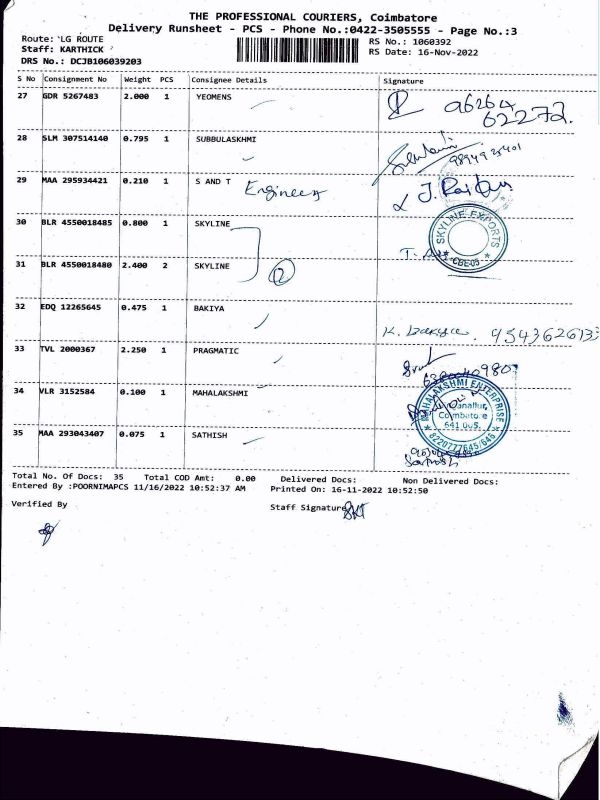 THE PROFESSIONAL COURIERS, Coimbatore
Delivery Runsheet - PCS - Phone No.:0422-3505555 - Page No.:3
Route: LG ROUTE
RS No.: 1060392
Staff: KARTHICK
RS Date: 16-Nov-2022
DRS No.: DCJB106039203
S No Consignment No Weight PCS Consignee Details Signature
27 GDR 5267483 2.000 1 YEOMENS
62272.
28 SLM 307514140 0.795 1 SUBBULASKHMI
29 MAA 295934421 0.210 1 S AND T Engineers
30 BLR 4550018485 0.800 1 SKYLINE
SKYLINE EXPORTS
CBE-05
31 BLR 4550018480 2.400 2 SKYLINE 2
32 EDQ 12265645 0.475 1 BAKIYA
33 TVL 2000367 2.250 1 PRAGMATIC
34 VLR 3152584 0.100 1 MAHALAKSHMI
MAHALAKSHMI ENTERPRISE
Coimbatore
641 005.
8220777645/645
35 MAA 293043407 0.075 1 SATHISH
Total No. Of Docs: 35 Total COD Amt: 0.00 Delivered Docs: Non Delivered Docs:
Entered By :POORNIMAPCS 11/16/2022 10:52:37 AM Printed On: 16-11-2022 10:52:50
Verified By
Staff Signature